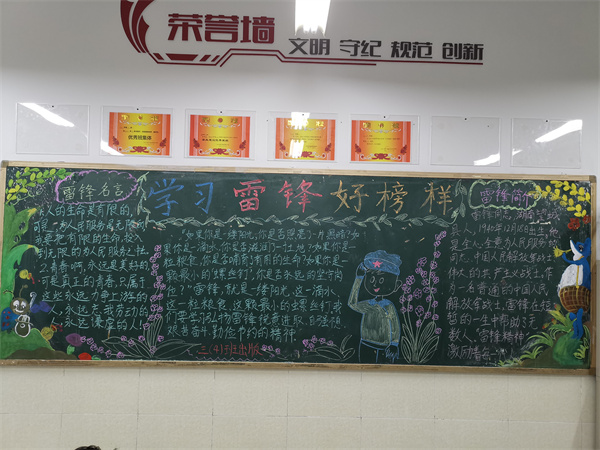 荣誉墙
文明 守纪 规范 创新
优秀班集体
学习雷锋好榜样
雷锋名言
人的生命是有限的,
可是为人民服务是无限的
我要把有限的生命,投入
到无限的为人民服务之中
青春啊,永远是美好的
可是真正的青春,只属于
这些永远力争上游的
人,永远忘我劳动的
人,永远谦虚的人!
"如果你是一缕阳光,你是否照亮了一片黑暗?如
果你是一滴水,你是否滋润了一寸土地?如果你是一
粒粮食,你是否哺育了有用的生命?如果你是一
颗最小的螺丝钉,你是否永远的坚守岗
位?"雷锋,就是一缕阳光,一滴水,
一粒粮食,这颗最小的螺丝钉,我
们要学习弘扬雷锋锐意进取、自强不息、
艰苦奋斗勤俭节约的精神
雷锋简介
人,1940年12月18日出生,他
是全心全意为人民服务的
中国人民解放军战士
伟大的共产主义战士,作
为一名普通的中国人民
解放军战士,雷锋在短
暂的一生中帮助了无
数人,雷锋精神
激励着